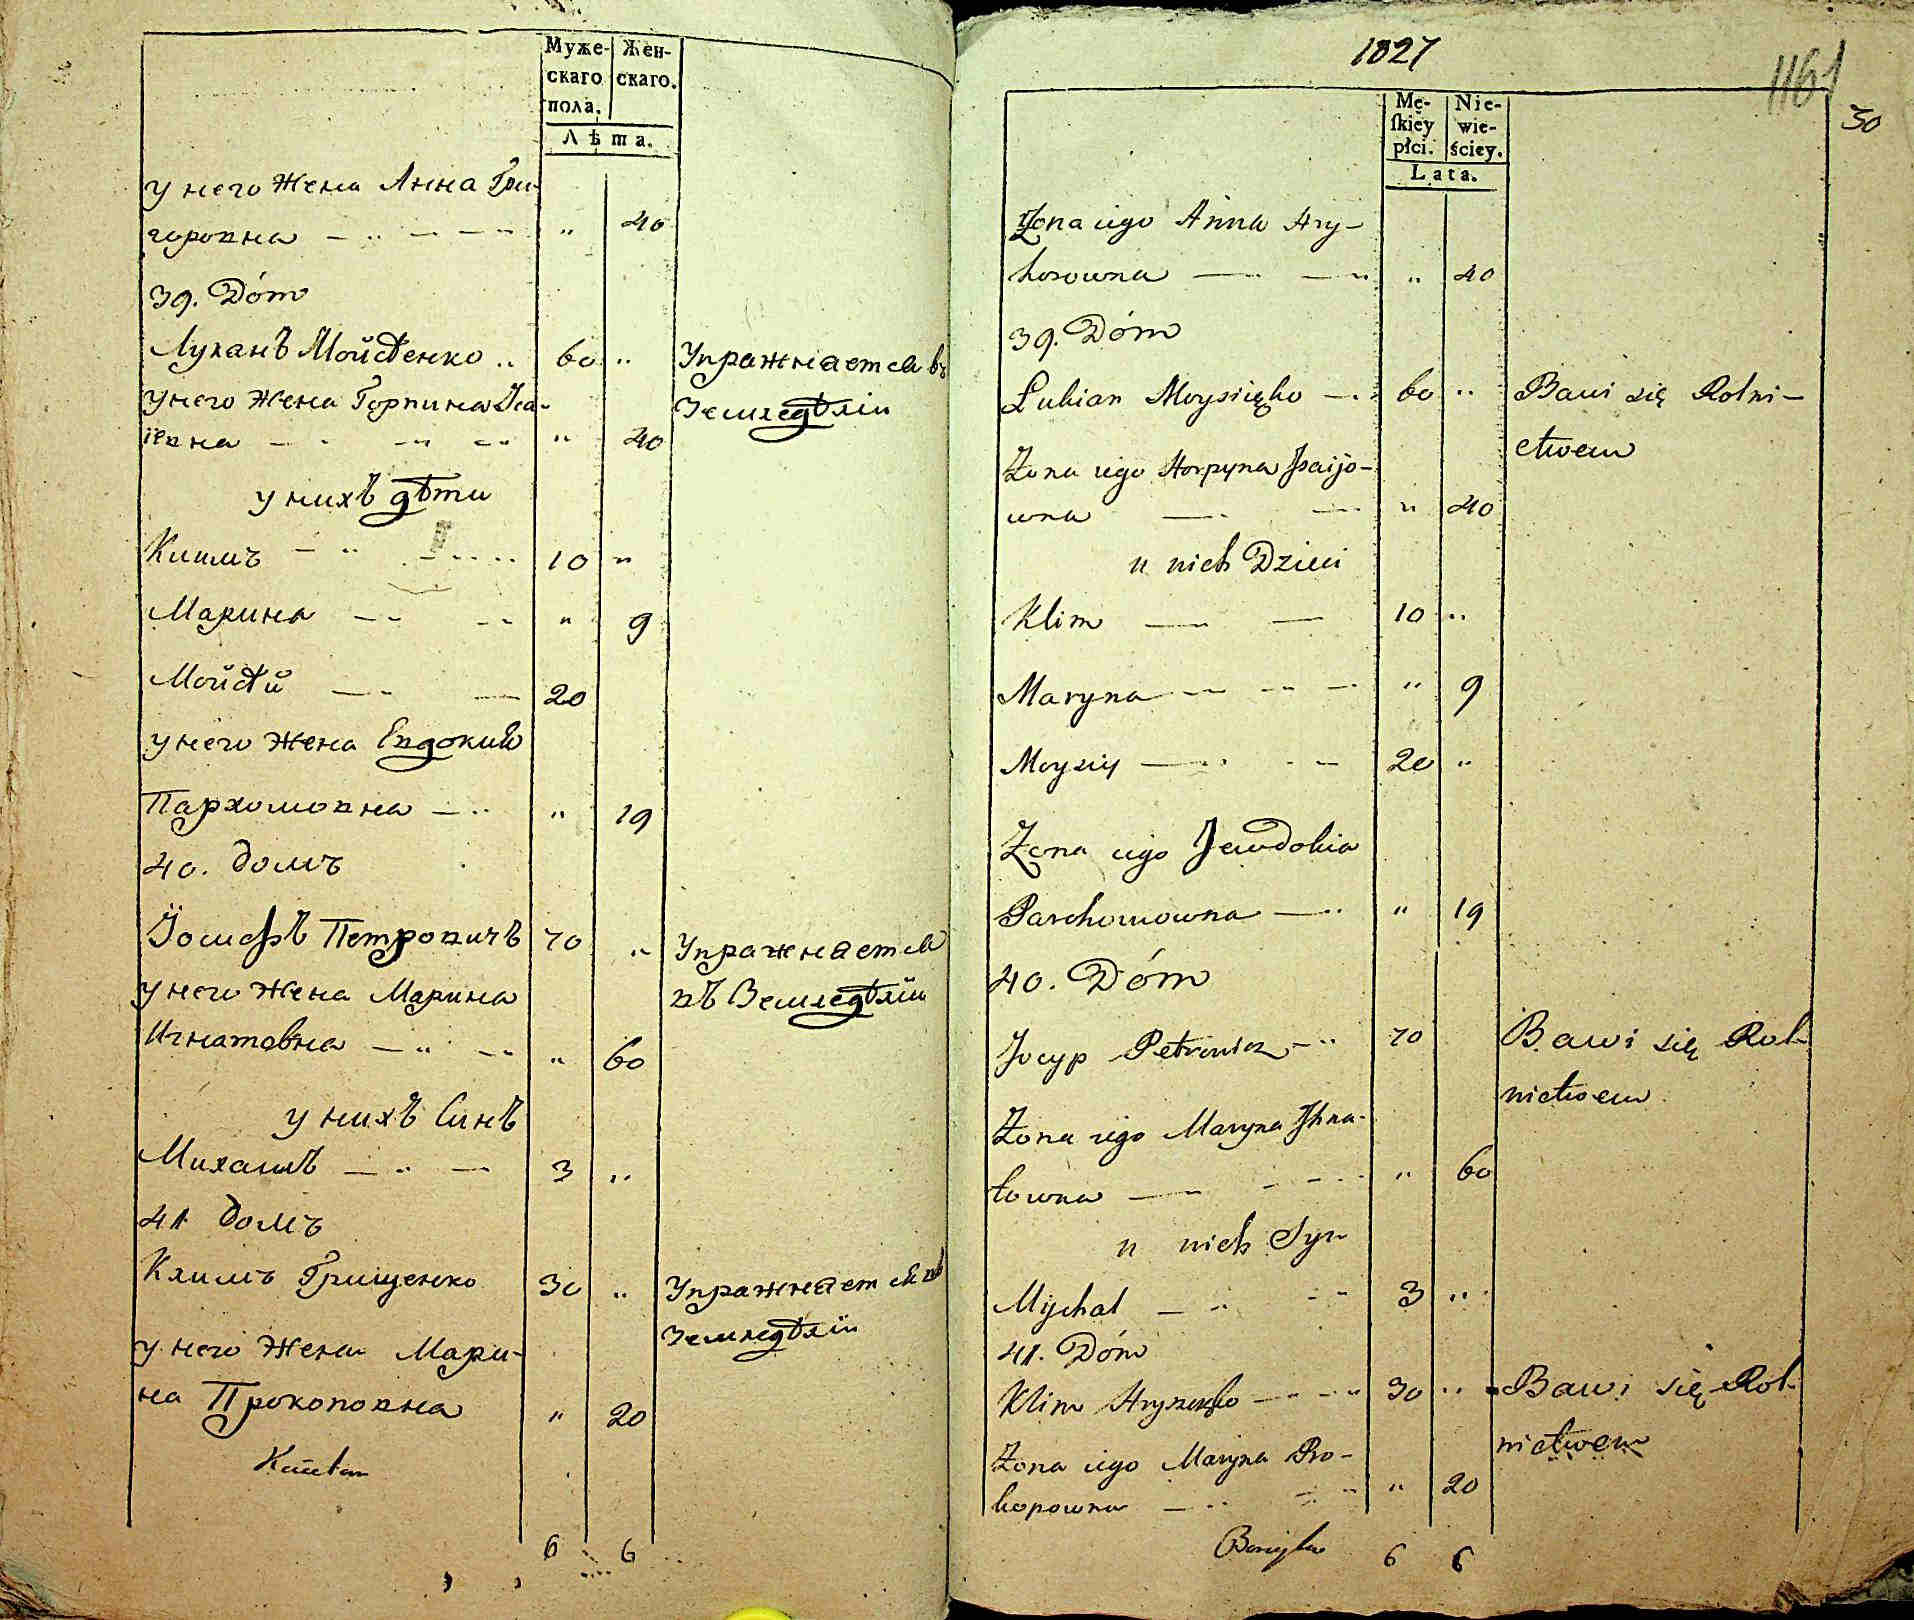 Муже-
скаго
пола.
Жен-
скаго.
Лѣта.
у него Жена Анна Гри-
горовна " 40
39. Dóm
Лукянъ Мойсѣенко 60 " Упражняется въ
Земледѣліи
у него Жена Горпина Іса-
іевна " 40
у нихъ дѣти
Климъ 10 "
Марина " 9
Мойсѣй 20
у него Жена Евдокия
Пархомовна " 19
40. домъ
Йосифъ Петровичъ 70 " Упражняется
въ Земледѣліи
у него Жена Марина
Игнатовна " 60
у нихъ Синъ
Михаилъ 3 "
41 домъ
Климъ Грищенко 30 " Упражняется въ
Земледѣліи
у него Жена Мари-
на Прокоповна " 20
6 6
1827
1161
30
Mę-
skiey
płci.
Nie-
wie-
ściey.
Lata.
Żona iego Anna Hry-
horowna " 40
39. Dóm
Łukian Moysieńko 60 " Bawi się Rolni-
ctwem
Żona iego Horpyna Jsaijo-
wna " 40
u nich Dzieci
Klim 10 "
Maryna " 9
Moysiy 20 "
Żona iego Jewdokia
Parchomowna " 19
40. Dóm
Jocyp Petrowicz 70 Bawi się Rol-
nictwem
Żona iego Maryna Jhna-
towna " 60
u nich Syn
Mychał 3 "
41. Dóm
Klim Hryszczeńko 30 " Bawi się Rol-
nictwem
Żona iego Maryna Pro-
kopowna " 20
6 6